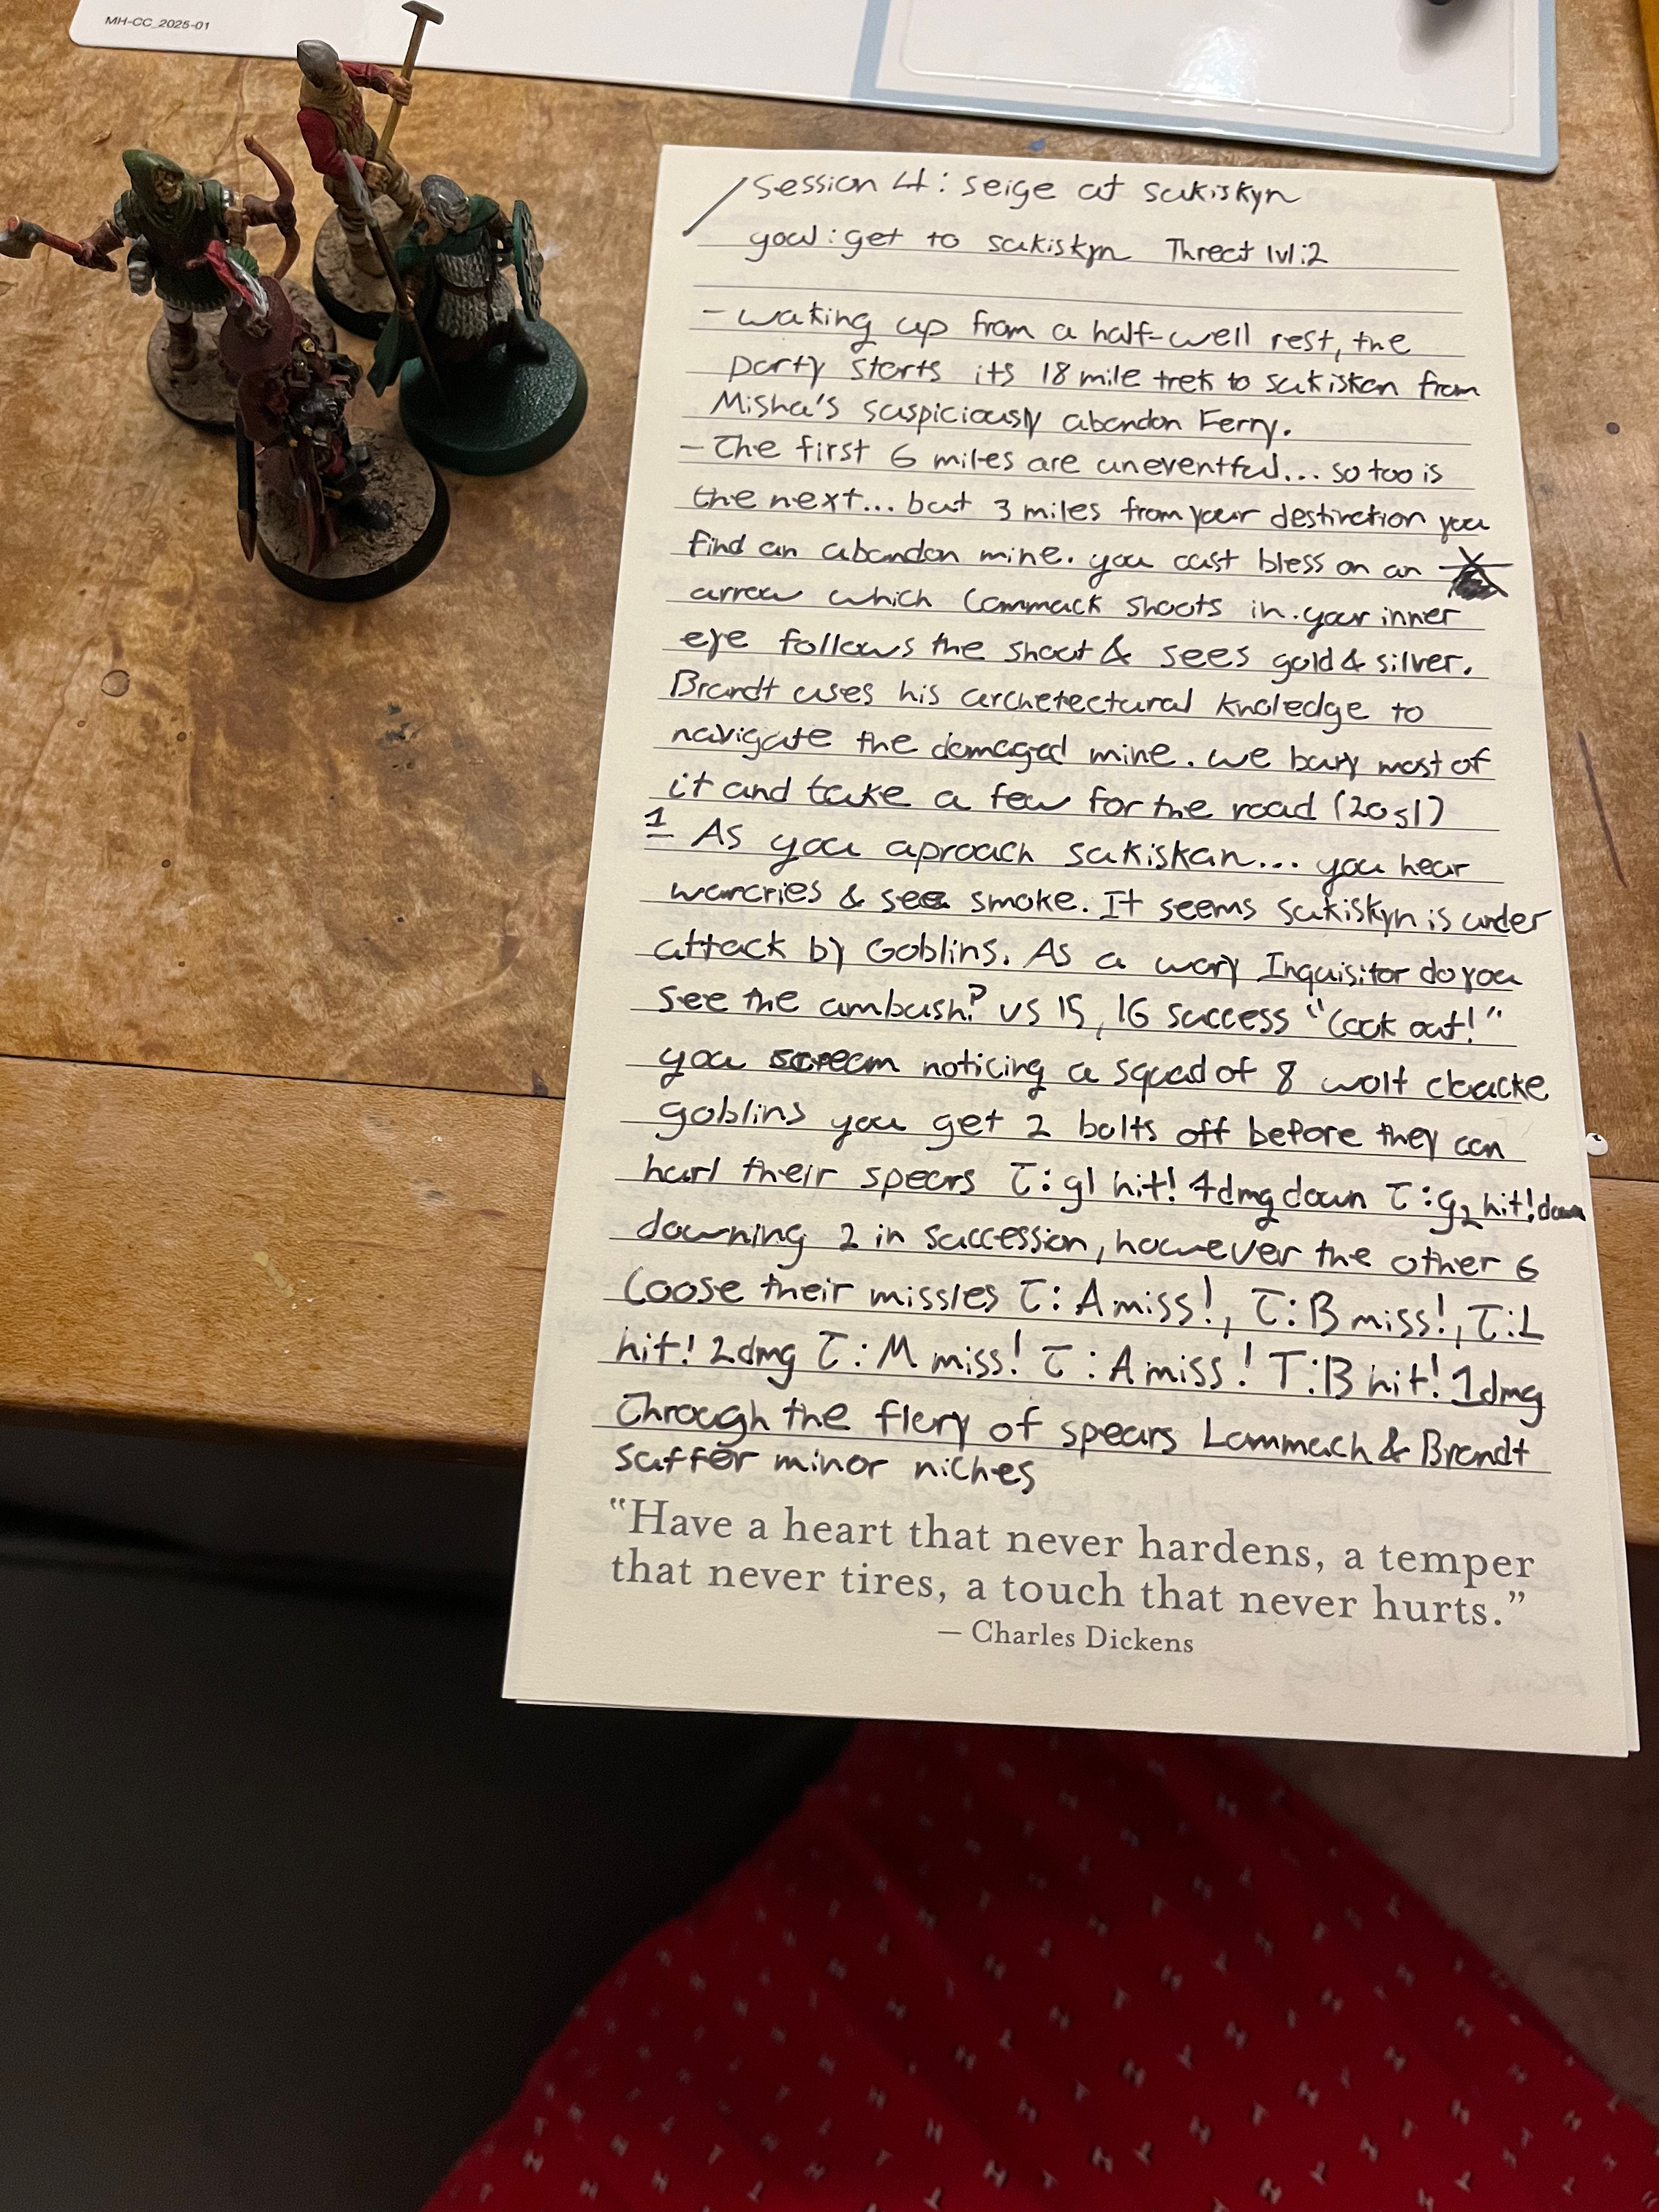 MH-CC_2025-01
Session 4: seige at sukiskyn
goal: get to sukiskyn Threat lvl:2
- waking up from a half-well rest, the
party starts its 18 mile trek to sukiskan from
Misha's suspiciously abandon Ferry.
- The first 6 miles are uneventful... so too is
the next... but 3 miles from your destination you
find an abandon mine. you cast bless on an
arrow which Lammack shoots in. your inner
eye follows the shoot & sees gold & silver.
Brandt uses his archetectural knoledge to
navigate the damaged mine. we bury most of
it and take a few for the road (20sl)
1 As you aproach sukiskan... you hear
warcries & see smoke. It seems sukiskyn is under
attack by Goblins. As a wary Inquisitor do you
see the ambush? vs 15, 16 success "Look out!"
you scream noticing a squad of 8 wolf cloacke
goblins you get 2 bolts off before they can
hurl their spears T: g1 hit! 4dmg down T: g2 hit! down
downing 2 in succession, however the other 6
loose their missles T: A miss!, T: B miss!, T:L
hit! 2dmg T: M miss! T: A miss! T:B hit! 1dmg
Through the flery of spears Lammach & Brandt
suffer minor niches
"Have a heart that never hardens, a temper
that never tires, a touch that never hurts."
— Charles Dickens